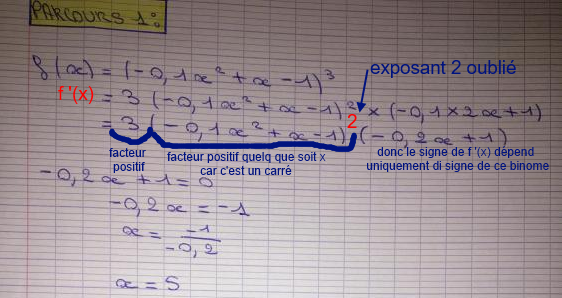 PARCOURS 1 :
f(x) = (-0,1x² + x - 1)³
exposant 2 oublié
f '(x) = 3 (-0,1x² + x - 1)² × (-0,1 × 2x + 1)
= 3 (-0,1x² + x - 1)² (-0,2x + 1)
facteur positif
facteur positif quelq que soit x car c'est un carré
donc le signe de f '(x) dépend uniquement di signe de ce binome
-0,2x + 1 = 0
-0,2x = -1
x = -1 / -0,2
x = 5